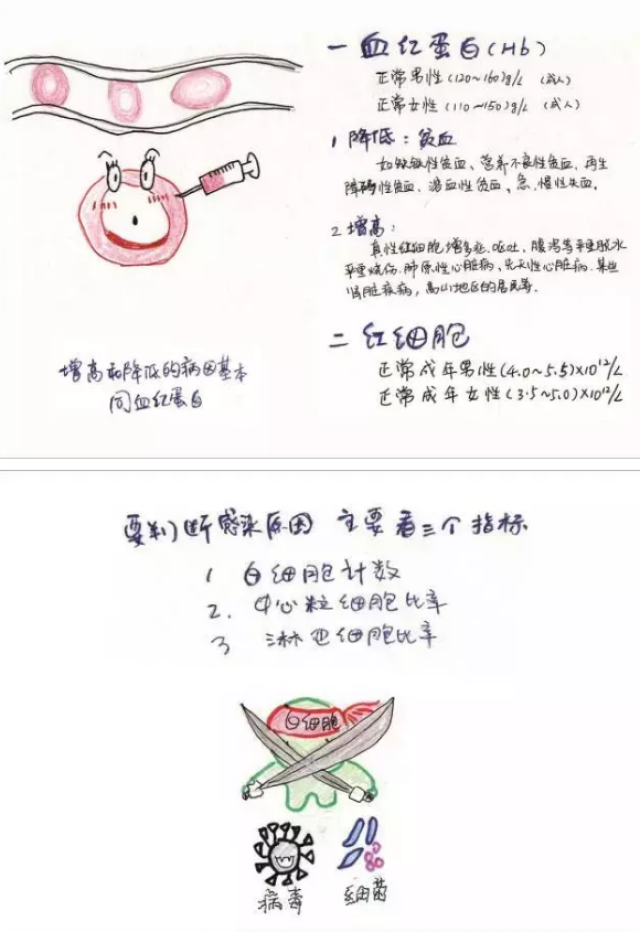 一 血红蛋白(Hb)
正常男性(120~160)g/L (成人)
正常女性(110~150)g/L (成人)
1 降低：贫血
如缺铁性贫血、营养不良性贫血、再生
障碍性贫血、溶血性贫血、急、慢性失血。
2 增高：
真性红细胞增多症、呕吐、腹泻等严重脱水
严重烧伤、肺原性心脏病、先天性心脏病、某些
肾脏疾病，高山地区的居民等.
二 红细胞
正常成年男性(4.0~5.5)×10¹²/L
正常成年女性(3.5~5.0)×10¹²/L
增高和降低的病因基本
同血红蛋白
要判断感染原因 主要看三个指标
1 白细胞计数
2. 中心粒细胞比率
3 淋巴细胞比率
白细胞
病毒
细菌